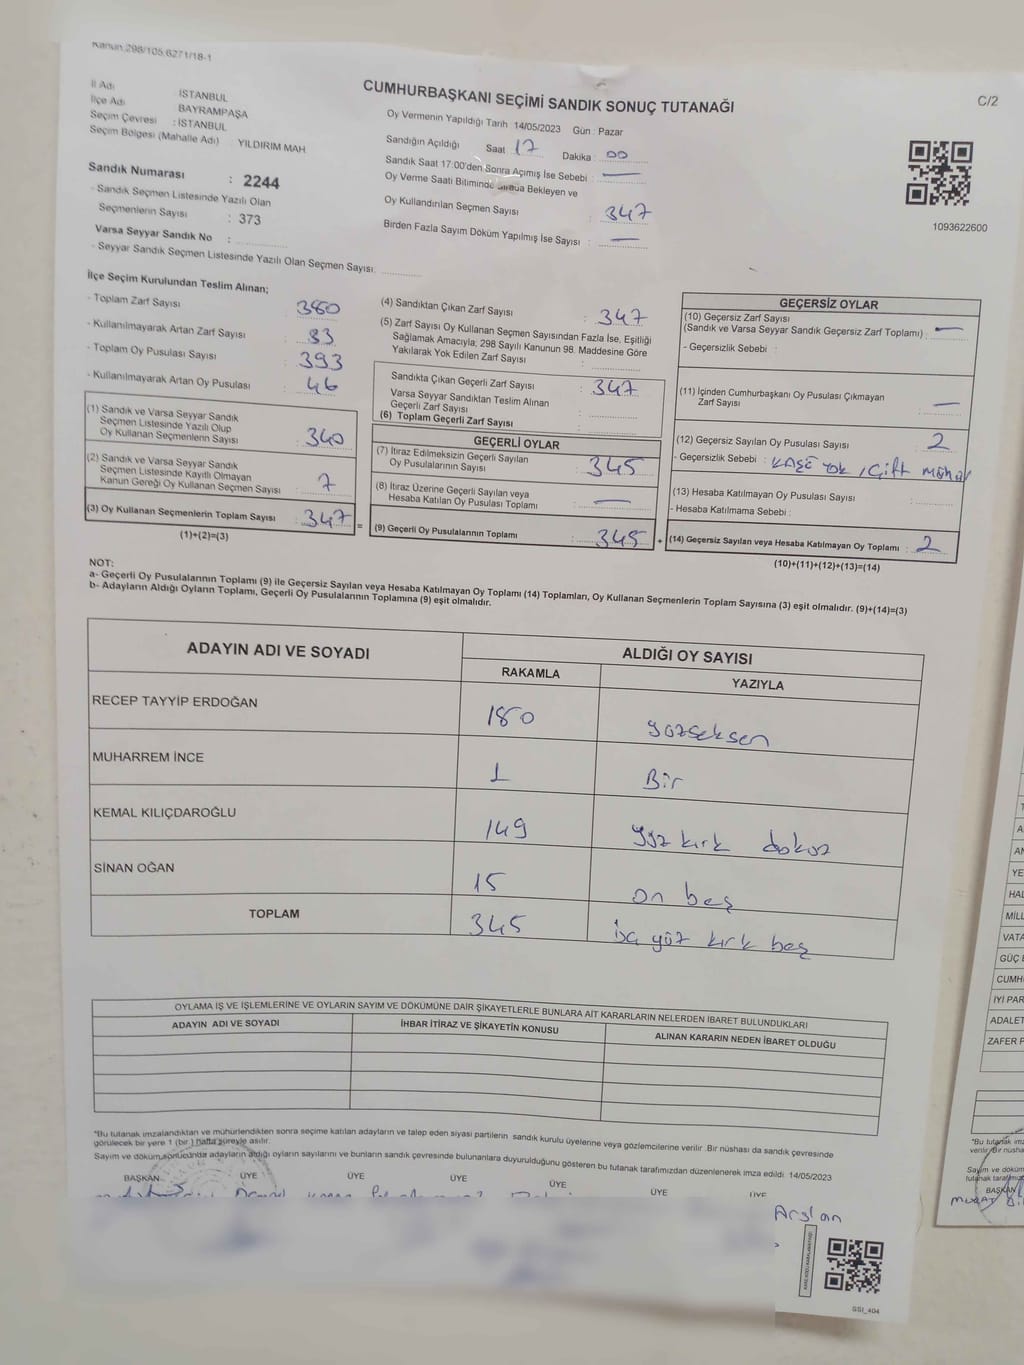 Kanun.298/105.6271/18-1
CUMHURBAŞKANI SEÇİMİ SANDIK SONUÇ TUTANAĞI
C/2
İl Adı İSTANBUL
İlçe Adı BAYRAMPAŞA
Seçim Çevresi : İSTANBUL
Seçim Bölgesi (Mahalle Adı) YILDIRIM MAH
Sandık Numarası : 2244
- Sandık Seçmen Listesinde Yazılı Olan
Seçmenlerin Sayısı : 373
Varsa Seyyar Sandık No :
- Seyyar Sandık Seçmen Listesinde Yazılı Olan Seçmen Sayısı:
Oy Vermenin Yapıldığı Tarih 14/05/2023 Gün : Pazar
Sandığın Açıldığı Saat 17 Dakika : 00
Sandık Saat 17:00'den Sonra Açımış İse Sebebi : —
Oy Verme Saati Bitiminde Sırada Bekleyen ve
Oy Kullandırılan Seçmen Sayısı : 347
Birden Fazla Sayım Döküm Yapılmış İse Sayısı : —
1093622600
İlçe Seçim Kurulundan Teslim Alınan;
- Toplam Zarf Sayısı : 380
- Kullanılmayarak Artan Zarf Sayısı : 33
- Toplam Oy Pusulası Sayısı : 393
- Kullanılmayarak Artan Oy Pusulası : 46
(1) Sandık ve Varsa Seyyar Sandık
Seçmen Listesinde Yazılı Olup
Oy Kullanan Seçmenlerin Sayısı : 340
(2) Sandık ve Varsa Seyyar Sandık
Seçmen Listesinde Kayıtlı Olmayan
Kanun Gereği Oy Kullanan Seçmen Sayısı : 7
(3) Oy Kullanan Seçmenlerin Toplam Sayısı : 347
(1)+(2)=(3)
=
(4) Sandıktan Çıkan Zarf Sayısı : 347
(5) Zarf Sayısı Oy Kullanan Seçmen Sayısından Fazla İse, Eşitliği
Sağlamak Amacıyla, 298 Sayılı Kanunun 98. Maddesine Göre
Yakılarak Yok Edilen Zarf Sayısı :
Sandıkta Çıkan Geçerli Zarf Sayısı : 347
Varsa Seyyar Sandıktan Teslim Alınan
Geçerli Zarf Sayısı :
(6) Toplam Geçerli Zarf Sayısı :
GEÇERLİ OYLAR
(7) İtiraz Edilmeksizin Geçerli Sayılan
Oy Pusulalarının Sayısı : 345
(8) İtiraz Üzerine Geçerli Sayılan veya
Hesaba Katılan Oy Pusulası Toplamı : —
(9) Geçerli Oy Pusulalarının Toplamı : 345
+
GEÇERSİZ OYLAR
(10) Geçersiz Zarf Sayısı
(Sandık ve Varsa Seyyar Sandık Geçersiz Zarf Toplamı) : —
- Geçersizlik Sebebi :
(11) İçinden Cumhurbaşkanı Oy Pusulası Çıkmayan
Zarf Sayısı : —
(12) Geçersiz Sayılan Oy Pusulası Sayısı : 2
- Geçersizlik Sebebi : KAŞE YOK, Çift mühür
(13) Hesaba Katılmayan Oy Pusulası Sayısı :
- Hesaba Katılmama Sebebi :
(14) Geçersiz Sayılan veya Hesaba Katılmayan Oy Toplamı : 2
(10)+(11)+(12)+(13)=(14)
NOT:
a- Geçerli Oy Pusulalarının Toplamı (9) ile Geçersiz Sayılan veya Hesaba Katılmayan Oy Toplamı (14) Toplamları, Oy Kullanan Seçmenlerin Toplam Sayısına (3) eşit olmalıdır. (9)+(14)=(3)
b- Adayların Aldığı Oyların Toplamı, Geçerli Oy Pusulalarının Toplamına (9) eşit olmalıdır.
ADAYIN ADI VE SOYADI
ALDIĞI OY SAYISI
RAKAMLA YAZIYLA
RECEP TAYYİP ERDOĞAN 180 yüzseksen
MUHARREM İNCE 1 Bir
KEMAL KILIÇDAROĞLU 149 yüz kırk dokuz
SİNAN OĞAN 15 on beş
TOPLAM 345 üç yüz kırk beş
OYLAMA İŞ VE İŞLEMLERİNE VE OYLARIN SAYIM VE DÖKÜMÜNE DAİR ŞİKAYETLERLE BUNLARA AİT KARARLARIN NELERDEN İBARET BULUNDUKLARI
ADAYIN ADI VE SOYADI İHBAR İTİRAZ VE ŞİKAYETİN KONUSU ALINAN KARARIN NEDEN İBARET OLDUĞU
*Bu tutanak imzalandıktan ve mühürlendikten sonra seçime katılan adayların ve talep eden siyasi partilerin sandık kurulu üyelerine veya gözlemcilerine verilir. Bir nüshası da sandık çevresinde
görülecek bir yere 1 (bir) hafta süreyle asılır.
Sayım ve döküm sonucunda adayların aldığı oyların sayılarını ve bunların sandık çevresinde bulunanlara duyurulduğunu gösteren bu tutanak tarafımızdan düzenlenerek imza edildi. 14/05/2023
BAŞKAN ÜYE ÜYE ÜYE ÜYE ÜYE ÜYE
Arslan
SSI_404
YE
HAL
MİLL
VATA
GÜÇ B
CUMH
İYİ PAR
ADALET
ZAFER P
*Bu tutanak im
verilir. Bir nüsha
Sayım ve döküm
tutanak tarafımız
BAŞKAN